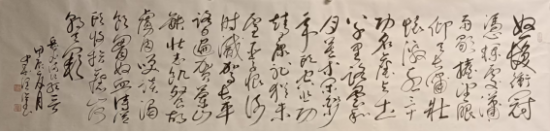 怒髮衝冠
憑欄處瀟
雨歇擡望眼
仰天長嘯壯
懷激烈三十
功名塵與土
八千里路雲和
月莫等閒白了少
年頭空悲切
靖康恥猶未
雪臣子恨何
時滅駕長車
踏破賀蘭山
缺壯志飢餐胡
虜肉笑談渴
飲匈奴血待從
頭收拾舊山河
朝天闕
岳飛滿江紅
甲辰